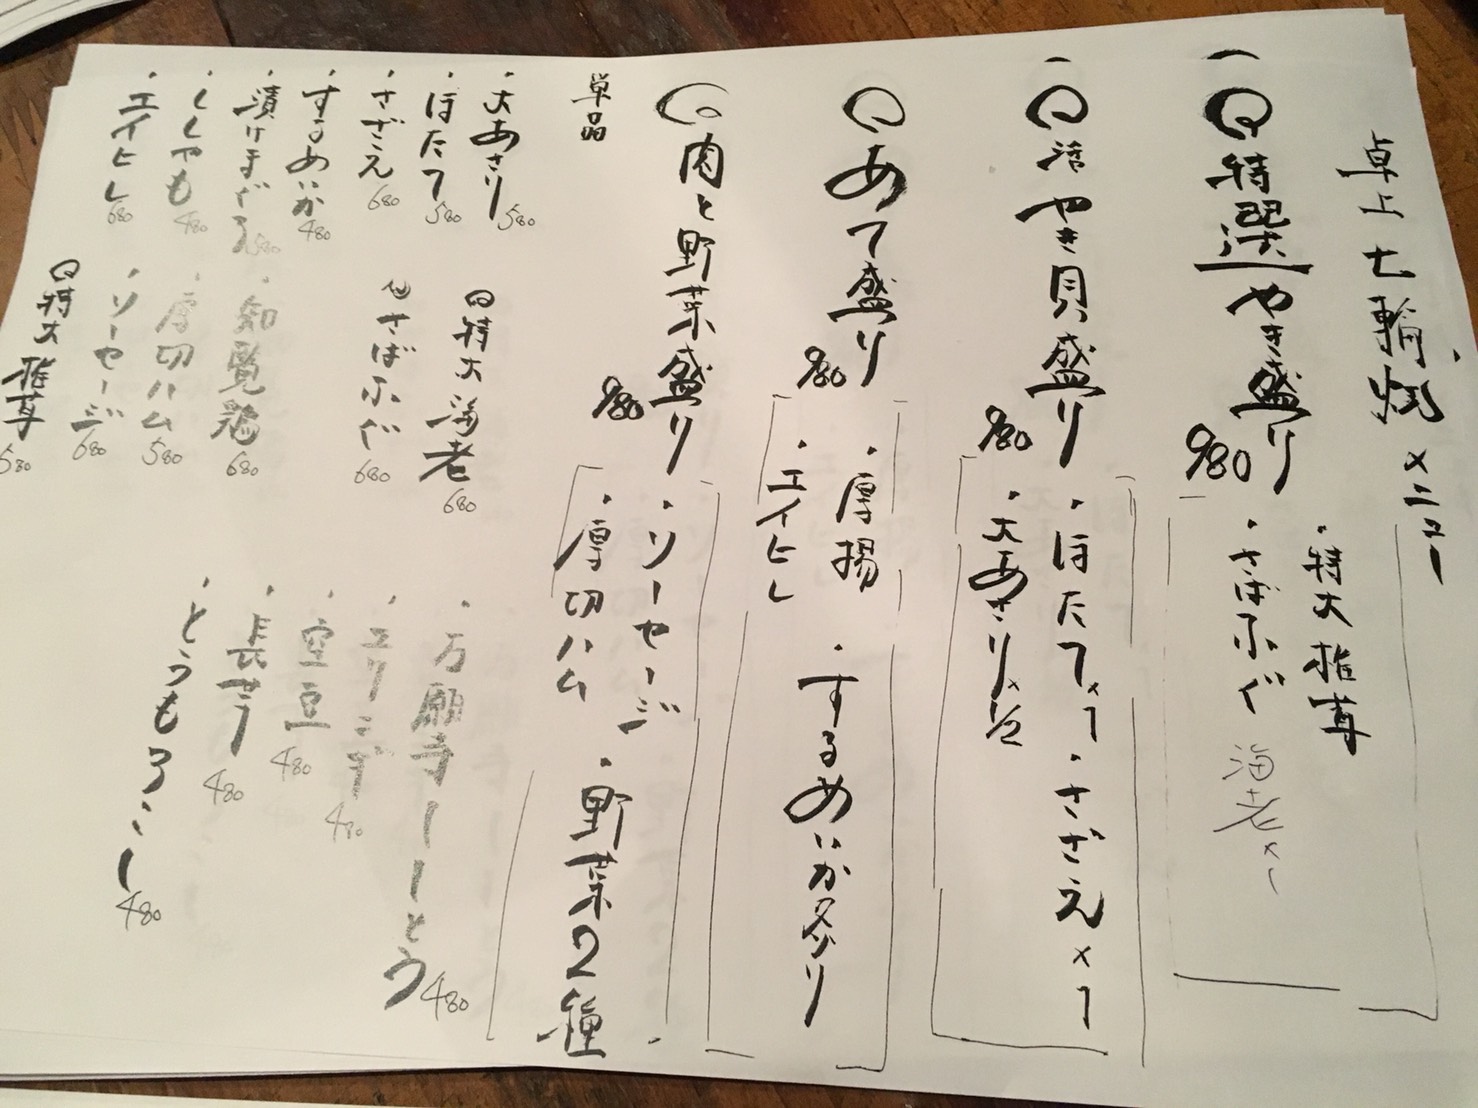 卓上七輪焼メニュー
特選やき盛り 980
・特大椎茸
・さばふぐ 海老×1
活やき貝盛り 980
・ほたて×1 ・さざえ×1
・大あさり×1/2
あて盛り 980
・厚揚 ・するめいか炙り
・エイヒレ
肉と野菜盛り 980
・ソーセージ ・野菜2種
・厚切ハム
単品
・大あさり 580
・ほたて 580
・さざえ 680
・するめいか 480
・漬けまぐろ 580
・ししゃも 480
・エイヒレ 680
特大海老 680
さばふぐ 680
・知覧鶏 680
・厚切ハム 580
・ソーセージ 680
特大椎茸 580
・万願寺とう 480
・エリンギ 480
・空豆 480
・長芋 480
・とうもろこし 480